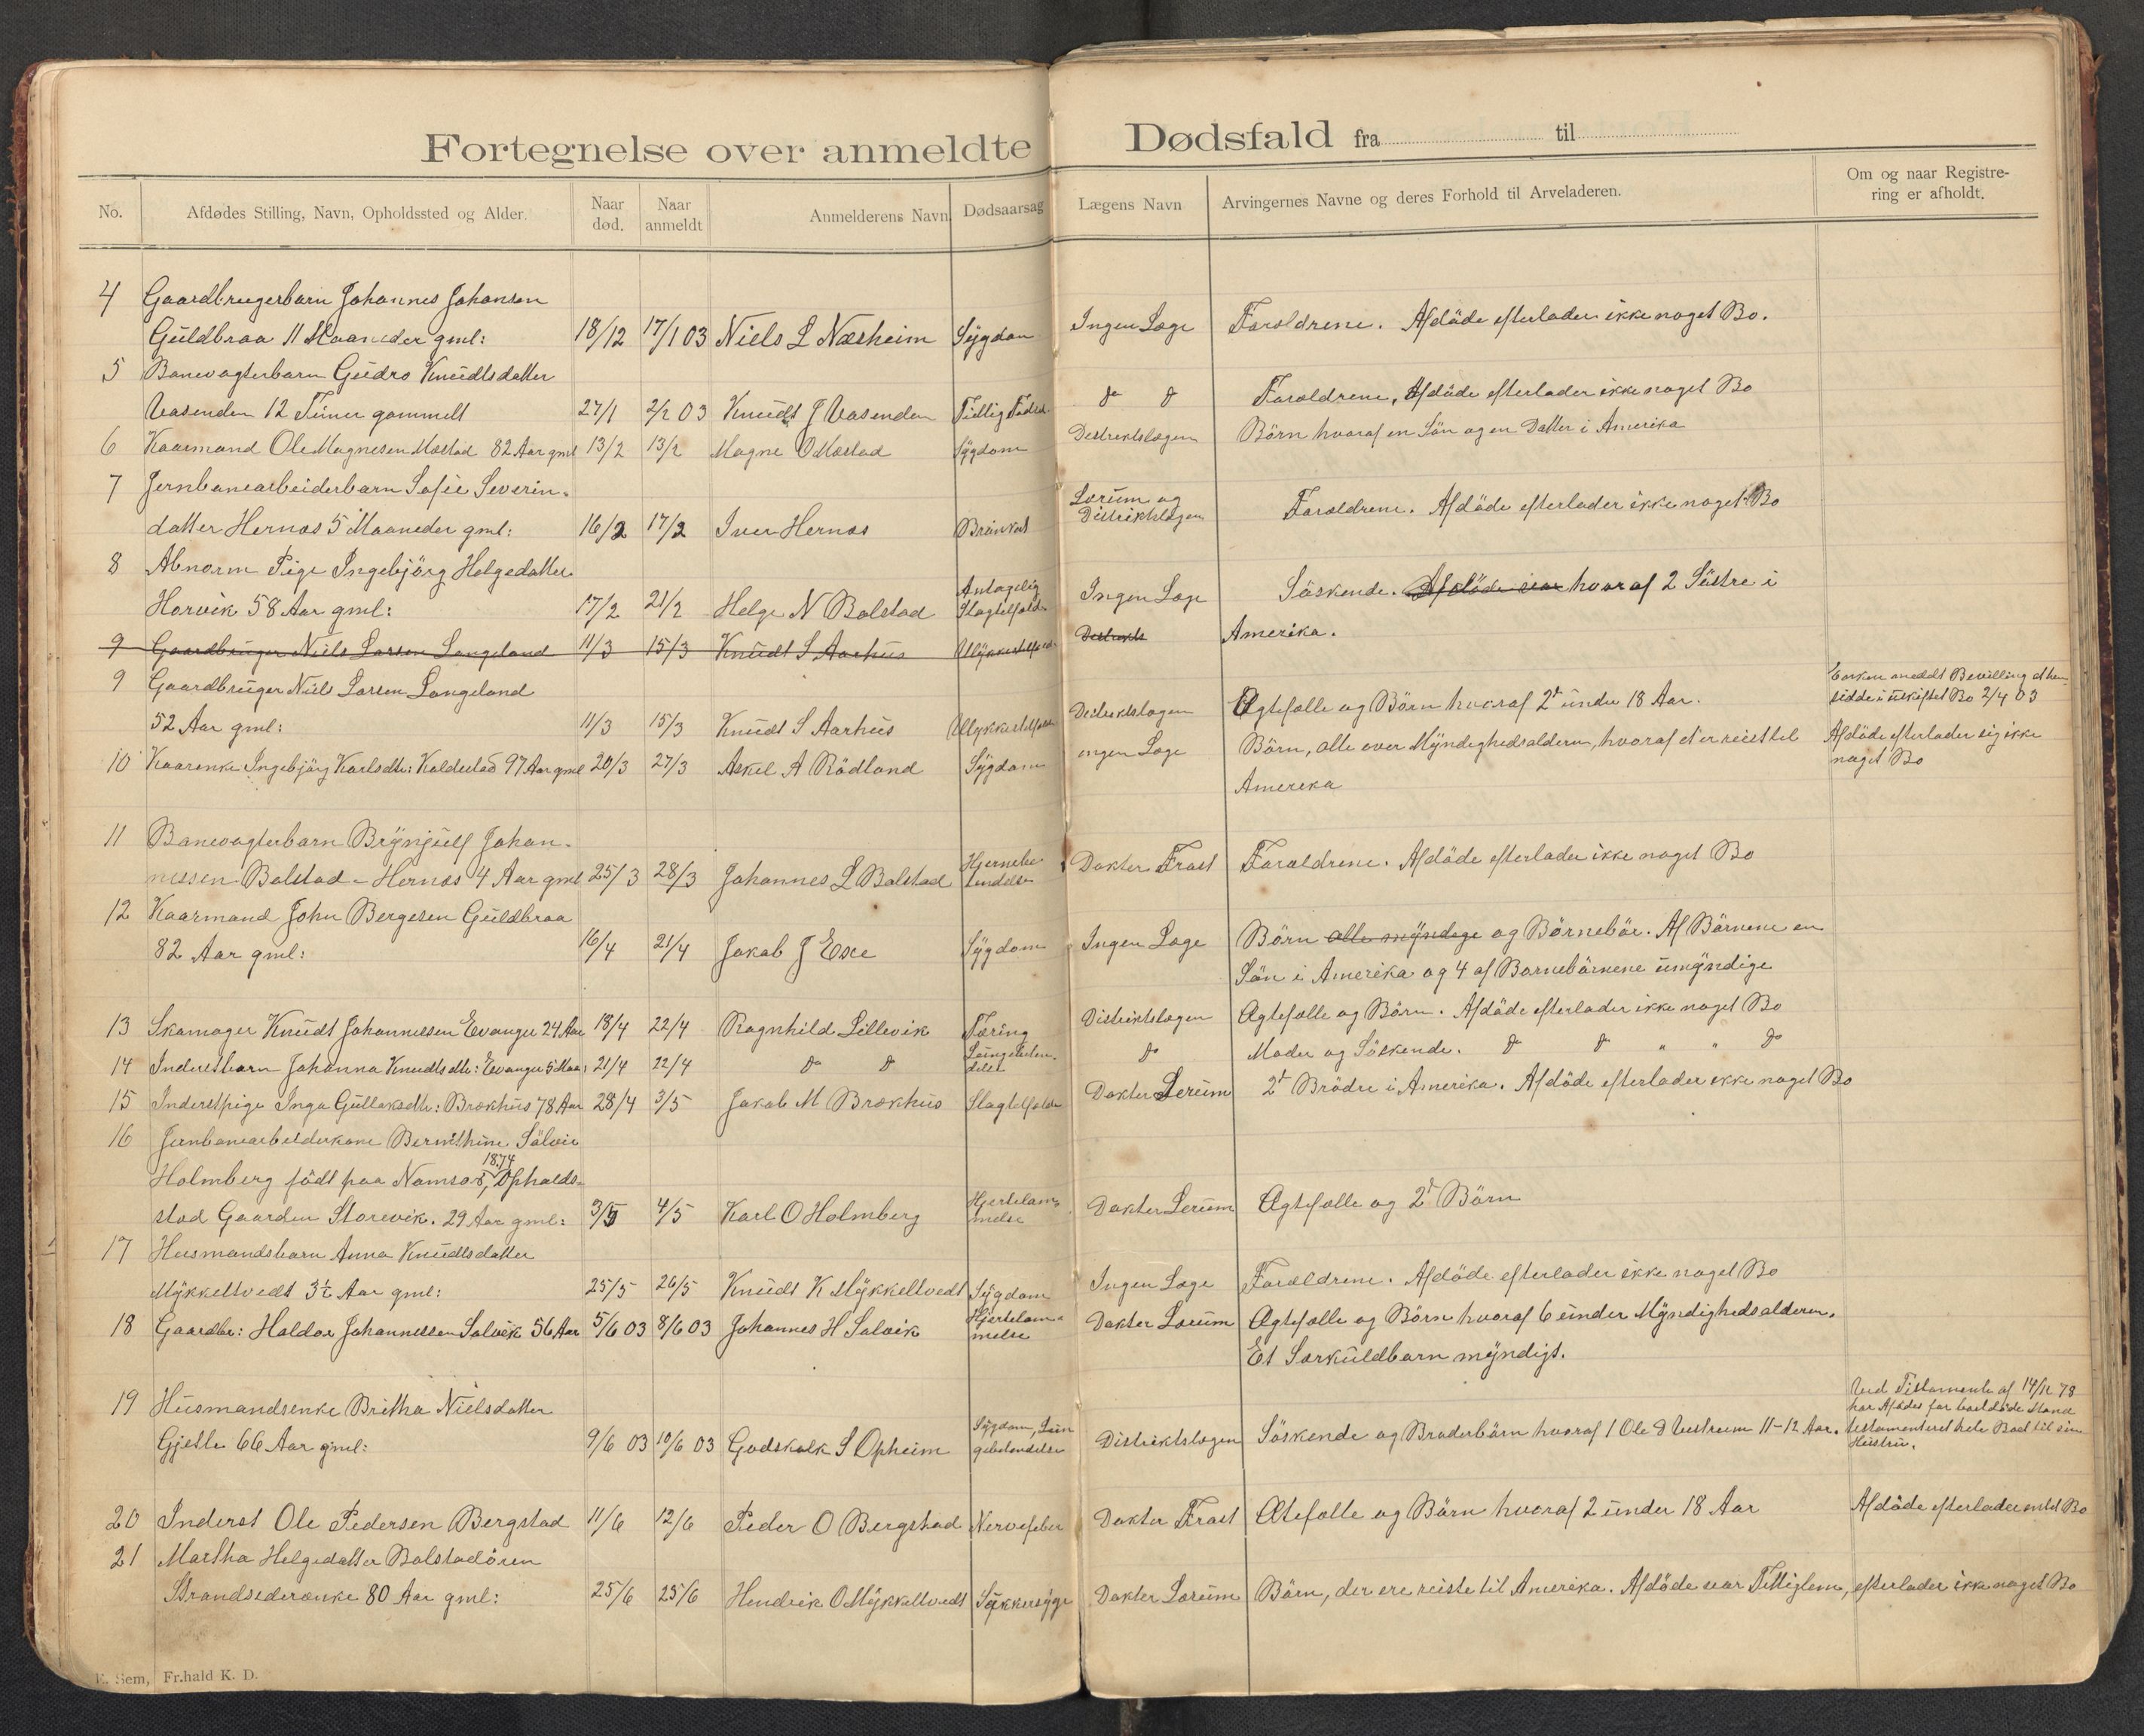 Fortegnelse over anmeldte Dødsfald fra til
No. Afdødes Stilling, Navn, Opholdssted og Alder. Naar død. Naar anmeldt Anmelderens Navn Dødsaarsag Lægens Navn Arvingernes Navne og deres Forhold til Arveladeren. Om og naar Registrering er afholdt.
4 Gaardbrugerbarn Johannes Johansen
Guldbraa 11 Maaneder gml: 18/12 17/1 03 Niels L Næsheim Sygdom Ingen Læge Foræældrene. Afdöde efterlader ikke noget Bo.
5 Banevogterbarn Gudro Knudtsdatter
Vasenden 12 Timer gammelt 27/1 2/2 03 Knudt J Vasenden Tidlig Födsel do do Forældrene, Afdöde efterlader ikke noget Bo
6 Kaarmand Ole Magnesen Mæstad 82 Aar gml 13/2 13/2 Magne O Mæstad Sygdom Destrektslægen Börn hvoraf en Sön og en Datter i Amerika
7 Jernbanearbeiderbarn Sofie Severin-
datter Hernæs 5 Maaneder gml: 16/2 17/2 Iver Hernæs Brünkit Lærum og Distriktslægen Forældrene. Afdöde efterlader ikke noget Bo
8 Abnorm Pige Ingebjörg Helgedatter
Horvik 58 Aar gml: 17/2 21/2 Helge N Bolstad Antagelig Slagtelfælde Ingen Læge Söskende. Afdöde var hvoraf 2 Söstre i
Amerika.
9 Gaardbruger Niels Larsen Langeland 11/3 15/3 Knudt S Aarhus Ulykkestilfælde Destrekts
9 Gaardbruger Niels Larsen Langeland
52 Aar gml: 11/3 15/3 Knudt S Aarhus Ulykkestilfælde Destrektslægen Ægtefælle og Börn hvoraf 2de under 18 Aar. Enken meddt Bevilling at hensidde i uskiftet Bo 2/4 03
10 Kaarenke Ingebjörg Karlsdtr: Kaldestad 97 Aar gml 20/3 27/3 Askel A Rödland Sygdom ingen Læge Börn, alle over Myndighedsalderen, hvoraf et er reist til Afdöde efterlader sig ikke
noget Bo
Amerika
11 Banevogterbarn Brynjulf Johan-
nessen Bolstad - Hernæs 4 Aar gml 25/3 28/3 Johannes L Bolstad Hjernebetændelse Dokter Frost Forældrene. Afdöde efterlader ikke noget Bo
12 Kaarmand John Bergesen Guldbraa
82 Aar gml: 16/4 21/4 Jakob J Exe Sygdom Ingen Læge Börn alle myndige og Börnebör. Af Börnene en
Sön i Amerika og 4 af Bornebörnene umyndige
13 Skomager Knudt Johannessen Evanger 24 Aar 18/4 22/4 Ragnhild Lillevik Tæring Distriktslægen Ægtefælle og Börn. Afdöde efterlader ikke noget Bo
14 Inderstbarn Johanna Knudtsdtr: Evanger 5 Maa: 21/4 22/4 do do Lungebetændelse do Moder og Söskende. do do " " do
15 Inderstpige Inga Gullaksdtr: Brækhus 78 Aar 28/4 3/5 Jakob M Brækhus Slagtelfælde Dokter Lerum 2de Brödre i Amerika. Afdöde efterlader ikke noget Bo
16 Jernbanearbeiderkone Bernthine Sölvie
Holmberg födt paa Namsos, 1874 Opholds-
stad Gaarden Storevik. 29 Aar gml: 3/5 4/5 Karl O Holmberg Hjertelammelse Dokter Lerum Ægtefælle og 2de Börn
17 Husmandsbarn Anna Knudtsdatter
Mykkeltvedt 3½ Aar gml: 25/5 26/5 Knudt K Mykkeltvedt Sygdom Ingen Læge Forældrene. Afdöde efterlader ikke noget Bo
18 Gaardbr: Haldor Johannessen Salvik 56 Aar 5/6 03 8/6 03 Johannes H Salvik Hjertelammelse Dokter Lærum Ægtefælle og Börn hvoraf 6 under Myndighedsalderen.
Et Særkuldbarn myndigt.
19 Husmandsenke Britha Nielsdatter
Gjelle 66 Aar gml: 9/6 03 10/6 03 Godskalk S Opheim Sygdom, Lungebetændelse Distriktslægen Söskende og Broderbörn hvoraf 1 Ole 11-12 Aar. Ved Testamente af 14/12 78 har Afdödes för bortdöde Mand testamenteret hele Boet til sin Hustru.
20 Inderst Ole Pedersen Bergstad 11/6 12/6 Peder O Bergstad Nervefeber Dokter Frost Ætefælle og Börn hvoraf 2 under 18 Aar Afdöde efterlader intet Bo
21 Martha Helgedatter Bolstadören
Strandsiderenke 80 Aar gml: 25/6 25/6 Hendrik O Mykkeltvedt Sukkersyge Dokter Lærum Börn, der ere reiste til Amerika. Afdöde var Fattiglem, efterlader ikke noget Bo
E. Sem, Fr.hald K. D.